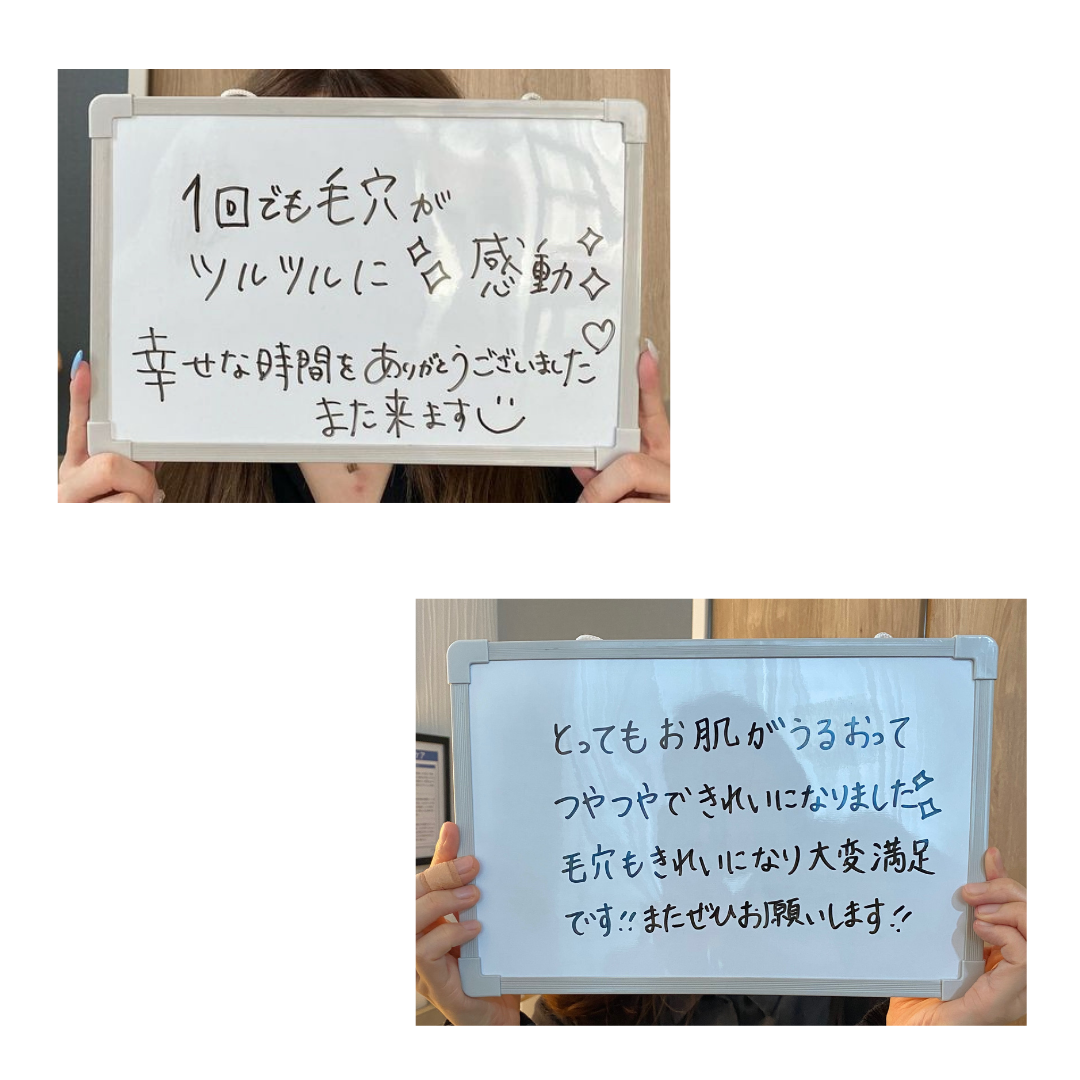 1回でも毛穴が
ツルツルに 感動
幸せな時間をありがとうございました♡
また来ます
とってもお肌がうるおって
つやつやできれいになりました
毛穴もきれいになり大変満足
です!!またぜひお願いします!!